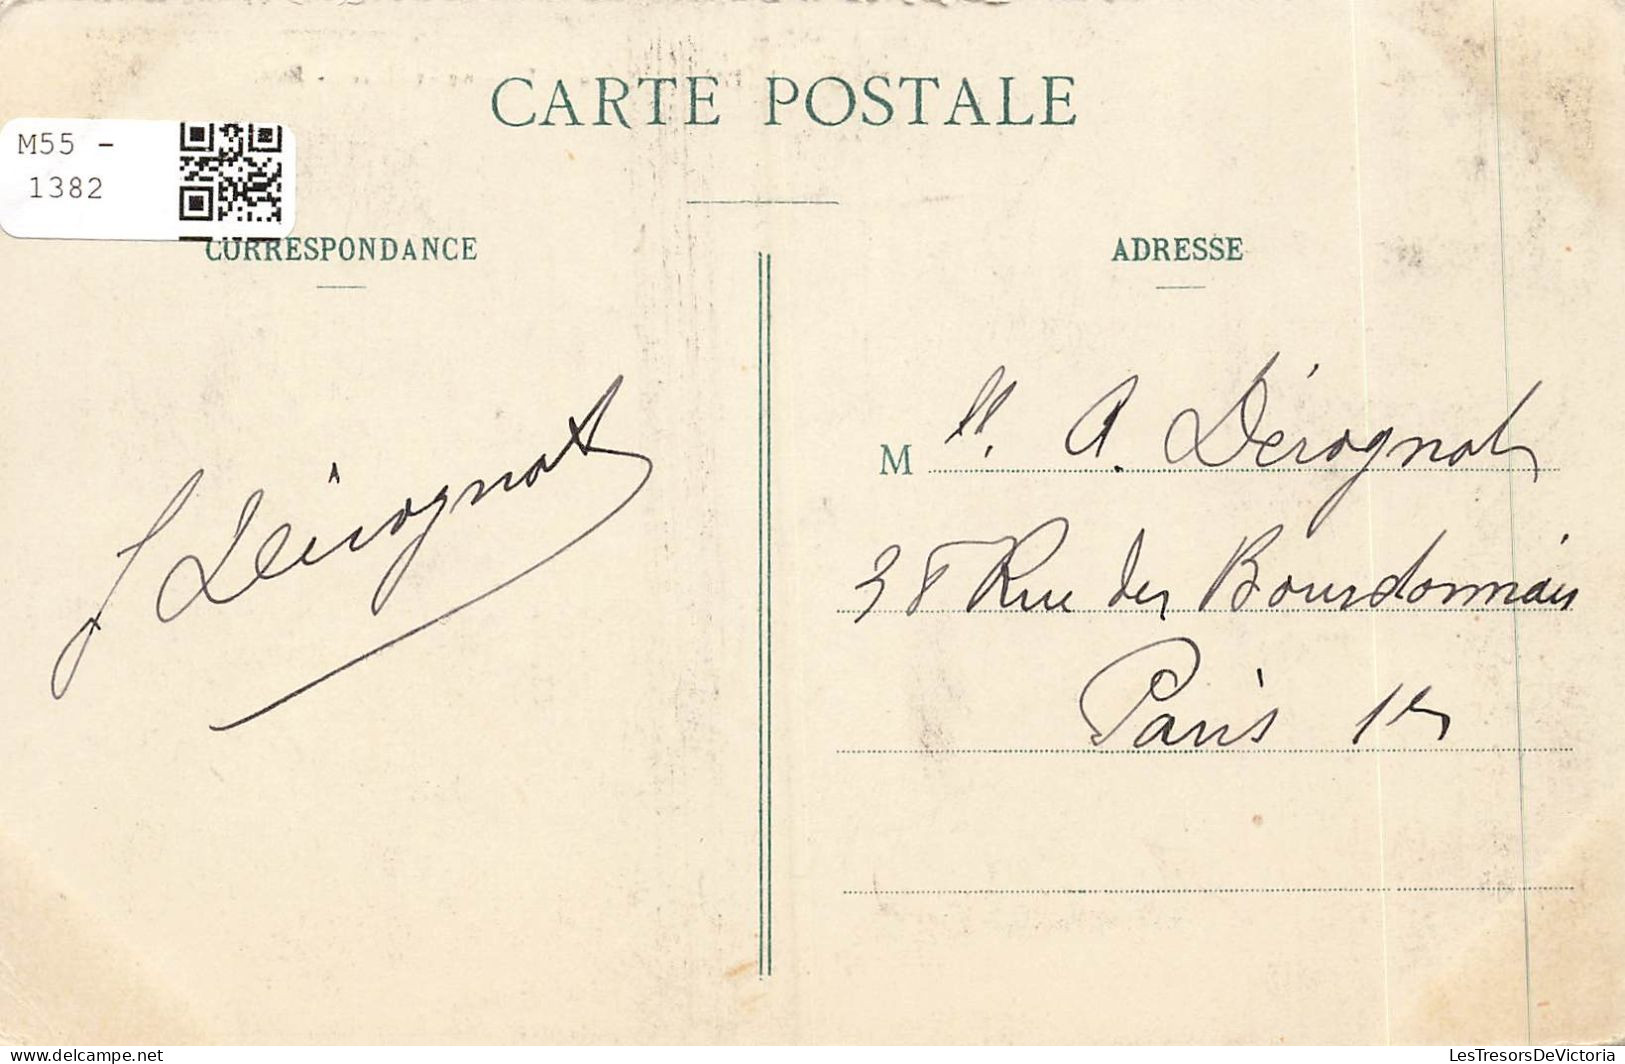 CARTE POSTALE
M55 -
1382
CORRESPONDANCE
ADRESSE
J Dérognat
M ll. A. Dérognat
38 Rue des Bourdonnais
Paris 1er
LesTresorsDeVictoria